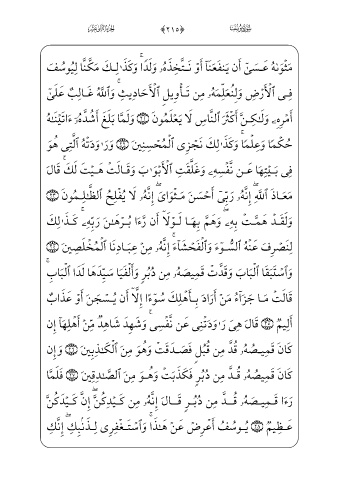 ﴿٢١٥﴾
مَثْوَىٰهُ عَسَىٰٓ أَن يَنفَعَنَآ أَوْ نَتَّخِذَهُۥ وَلَدًا ۚ وَكَذَٰلِكَ مَكَّنَّا لِيُوسُفَ
فِى ٱلْأَرْضِ وَلِنُعَلِّمَهُۥ مِن تَأْوِيلِ ٱلْأَحَادِيثِ ۚ وَٱللَّهُ غَالِبٌ عَلَىٰٓ
أَمْرِهِۦ وَلَٰكِنَّ أَكْثَرَ ٱلنَّاسِ لَا يَعْلَمُونَ ﴿٢١﴾ وَلَمَّا بَلَغَ أَشُدَّهُۥٓ ءَاتَيْنَٰهُ
حُكْمًا وَعِلْمًا ۚ وَكَذَٰلِكَ نَجْزِى ٱلْمُحْسِنِينَ ﴿٢٢﴾ وَرَٰوَدَتْهُ ٱلَّتِى هُوَ
فِى بَيْتِهَا عَن نَّفْسِهِۦ وَغَلَّقَتِ ٱلْأَبْوَٰبَ وَقَالَتْ هَيْتَ لَكَ ۚ قَالَ
مَعَاذَ ٱللَّهِ ۖ إِنَّهُۥ رَبِّىٓ أَحْسَنَ مَثْوَاىَ ۖ إِنَّهُۥ لَا يُفْلِحُ ٱلظَّٰلِمُونَ ﴿٢٣﴾
وَلَقَدْ هَمَّتْ بِهِۦ ۖ وَهَمَّ بِهَا لَوْلَآ أَن رَّءَا بُرْهَٰنَ رَبِّهِۦ ۚ كَذَٰلِكَ
لِنَصْرِفَ عَنْهُ ٱلسُّوٓءَ وَٱلْفَحْشَآءَ ۚ إِنَّهُۥ مِنْ عِبَادِنَا ٱلْمُخْلَصِينَ ﴿٢٤﴾
وَٱسْتَبَقَا ٱلْبَابَ وَقَدَّتْ قَمِيصَهُۥ مِن دُبُرٍ وَأَلْفَيَا سَيِّدَهَا لَدَا ٱلْبَابِ ۚ
قَالَتْ مَا جَزَآءُ مَنْ أَرَادَ بِأَهْلِكَ سُوٓءًا إِلَّآ أَن يُسْجَنَ أَوْ عَذَابٌ
أَلِيمٌ ﴿٢٥﴾ قَالَ هِىَ رَٰوَدَتْنِى عَن نَّفْسِى ۚ وَشَهِدَ شَاهِدٌ مِّنْ أَهْلِهَآ إِن
كَانَ قَمِيصُهُۥ قُدَّ مِن قُبُلٍ فَصَدَقَتْ وَهُوَ مِنَ ٱلْكَٰذِبِينَ ﴿٢٦﴾ وَإِن
كَانَ قَمِيصُهُۥ قُدَّ مِن دُبُرٍ فَكَذَبَتْ وَهُوَ مِنَ ٱلصَّٰدِقِينَ ﴿٢٧﴾ فَلَمَّا
رَءَا قَمِيصَهُۥ قُدَّ مِن دُبُرٍ قَالَ إِنَّهُۥ مِن كَيْدِكُنَّ ۖ إِنَّ كَيْدَكُنَّ
عَظِيمٌ ﴿٢٨﴾ يُوسُفُ أَعْرِضْ عَنْ هَٰذَا ۚ وَٱسْتَغْفِرِى لِذَنۢبِكِ ۖ إِنَّكِ